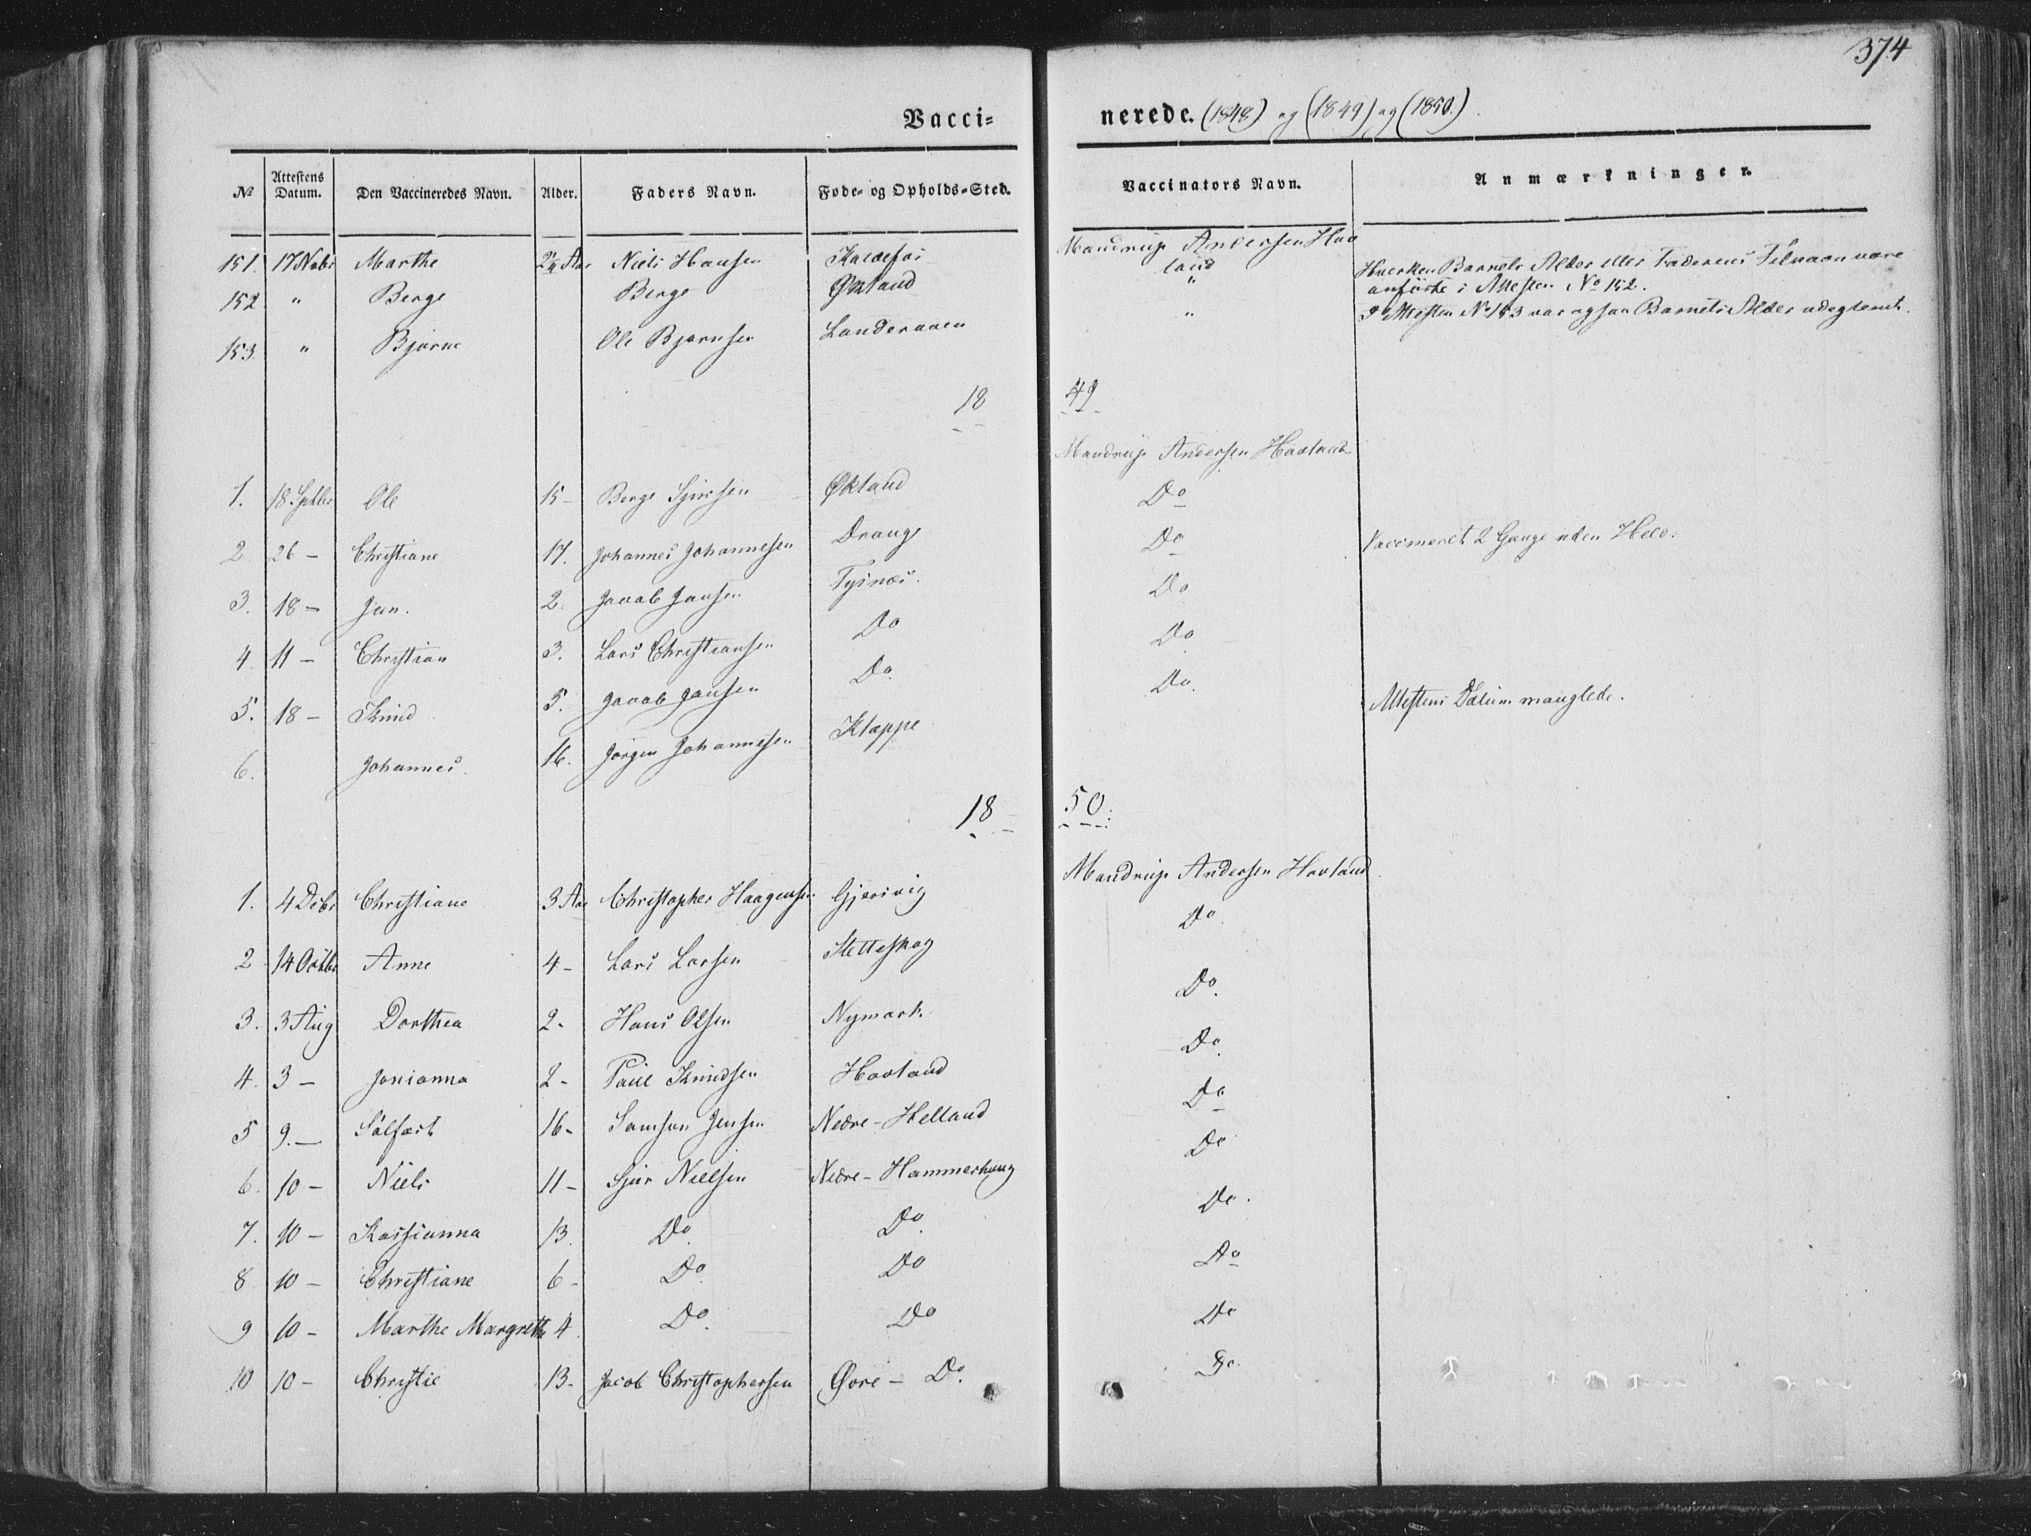 374
Vacci= nerede. (1848) og (1849) og (1850.)
No Attestens Datum. Den Vaccineredes Navn. Alder. Faders Navn. Føde- og Opholds-Sted. Vaccinators Navn. Anmærkninger.
151. 17 Novbr Marthe Aar Niels Hansen Mandrup Andersen Hav
land
Hverken Barnets Alder eller Faderens Tilnavn vare
anførte i Attesten No 152.
152 " Berge Berge Økland "
I Attesten No 153 var ogsaa Barnets Alder udeglemt.
153 " Bjørne Ole Bjørnsen Landeraaen "
18 49
Mandrup Andersen Havland
1. 18 Septbr Ole 15 - Berge Sjursen Økland Do
2 26 - Christiane 17. Johannes Johannesen Drange Do Vaccineret 2 Gange uden Held.
3. 18 - Jan. 2. Jacob Jansen Tysnæs. Do
4. 11 - Christian 3. Lars Christiansen Do Do
5. 18 - Knud 5. Jacob Jansen Do. Do. Attestens Datum manglede.
6. Johannes. 16. Jørgen Johannesen Kleppe
18 50.
Mandrup Andersen Havland.
1. 4 Decbr Christiane 3 Aar Christopher Haagensen Gjersvig Do.
2 14 Octbr Anne 4 - Lars Larsen Stetteskog Do.
3. 3 Aug Dorthea 2 - Hans Olsen Nymark. Do.
4. 3 - Jonianna 2 - Paul Knudsen Havland Do
5 9. - Sølfæst 16 - Samson Jensen Nedre - Helland Do
6. 10 - Niels 11 - Sjur Nielsen Nedre - Hammerhaug Do.
7. 10 - Kassianna 13. Do. Do. Do
8 10 - Christiane 6 - Do. Do Do
9 10 - Marthe Margrethe 4. Do. Do Do.
10 10 - Christie 13 - Jacob Christophersen Øvre - Do.